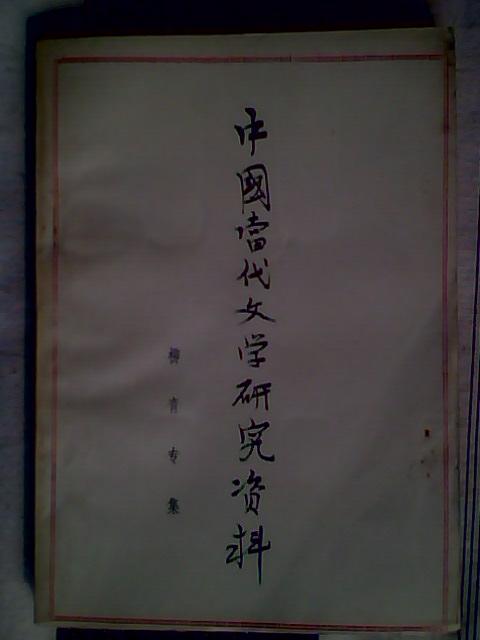 中國當代文学研究资料
柳青专集